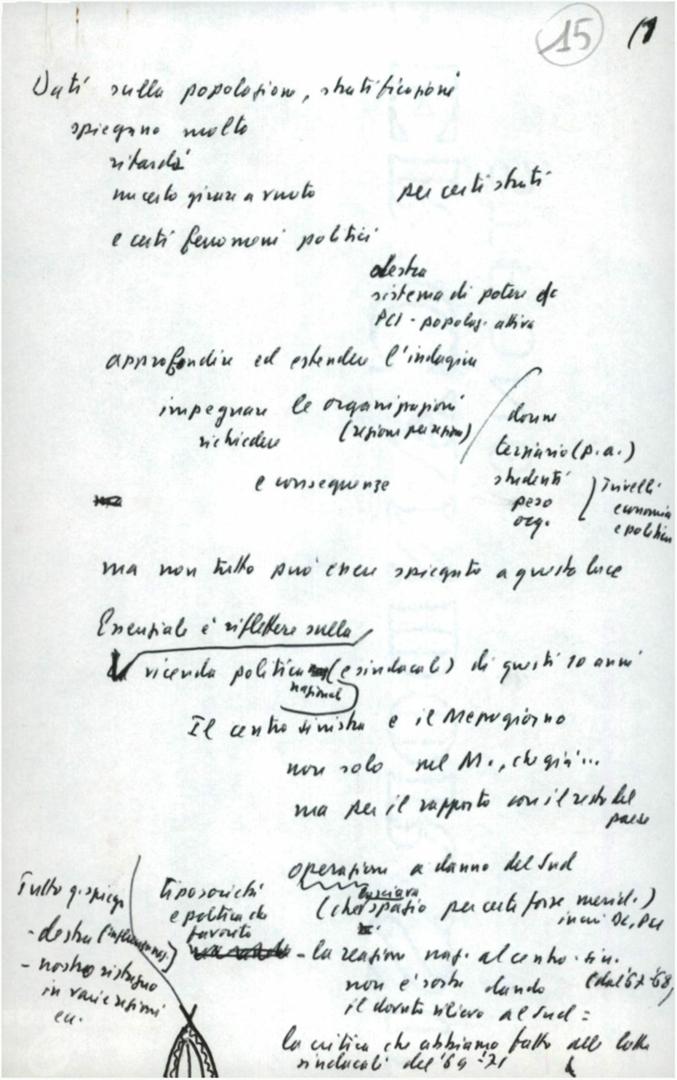 15
Dati sulla popolazione, stratificazione
spiegano molto
ritardi
un certo girare a vuoto per certi strati
e certi fenomeni politici
destra
sistema di potere dc
PCI - popolaz. attiva
approfondire ed estendere l'indagine
impegnare le organizzazioni
(regione per regione)
richiedere
donne
terziario (p.a.)
studenti
peso
org.
Trivelli
economia
e politica
e conseguenze
ma non tutto può essere spiegato a questa luce
Essenziale è riflettere sulla
vicenda politica (e sindacale) di questi 10 anni
nazionale
Il centro sinistra e il Mezzogiorno
non solo nel M., che già...
ma per il rapporto con il resto del
paese
operazione a danno del Sud
lasciava
(che spazio per certe forze merid.)
in cui DC, PCI
Tutto q. spiega
- destra
- nostro ristagno
in varie regioni
ecc.
e politica che
favorito
- la reazione naz. al centro-sin.
non è stata dando (dal '67-'68)
il dovuto rilievo al Sud =
la critica che abbiamo fatto alle lotte
sindacali del '69-'71